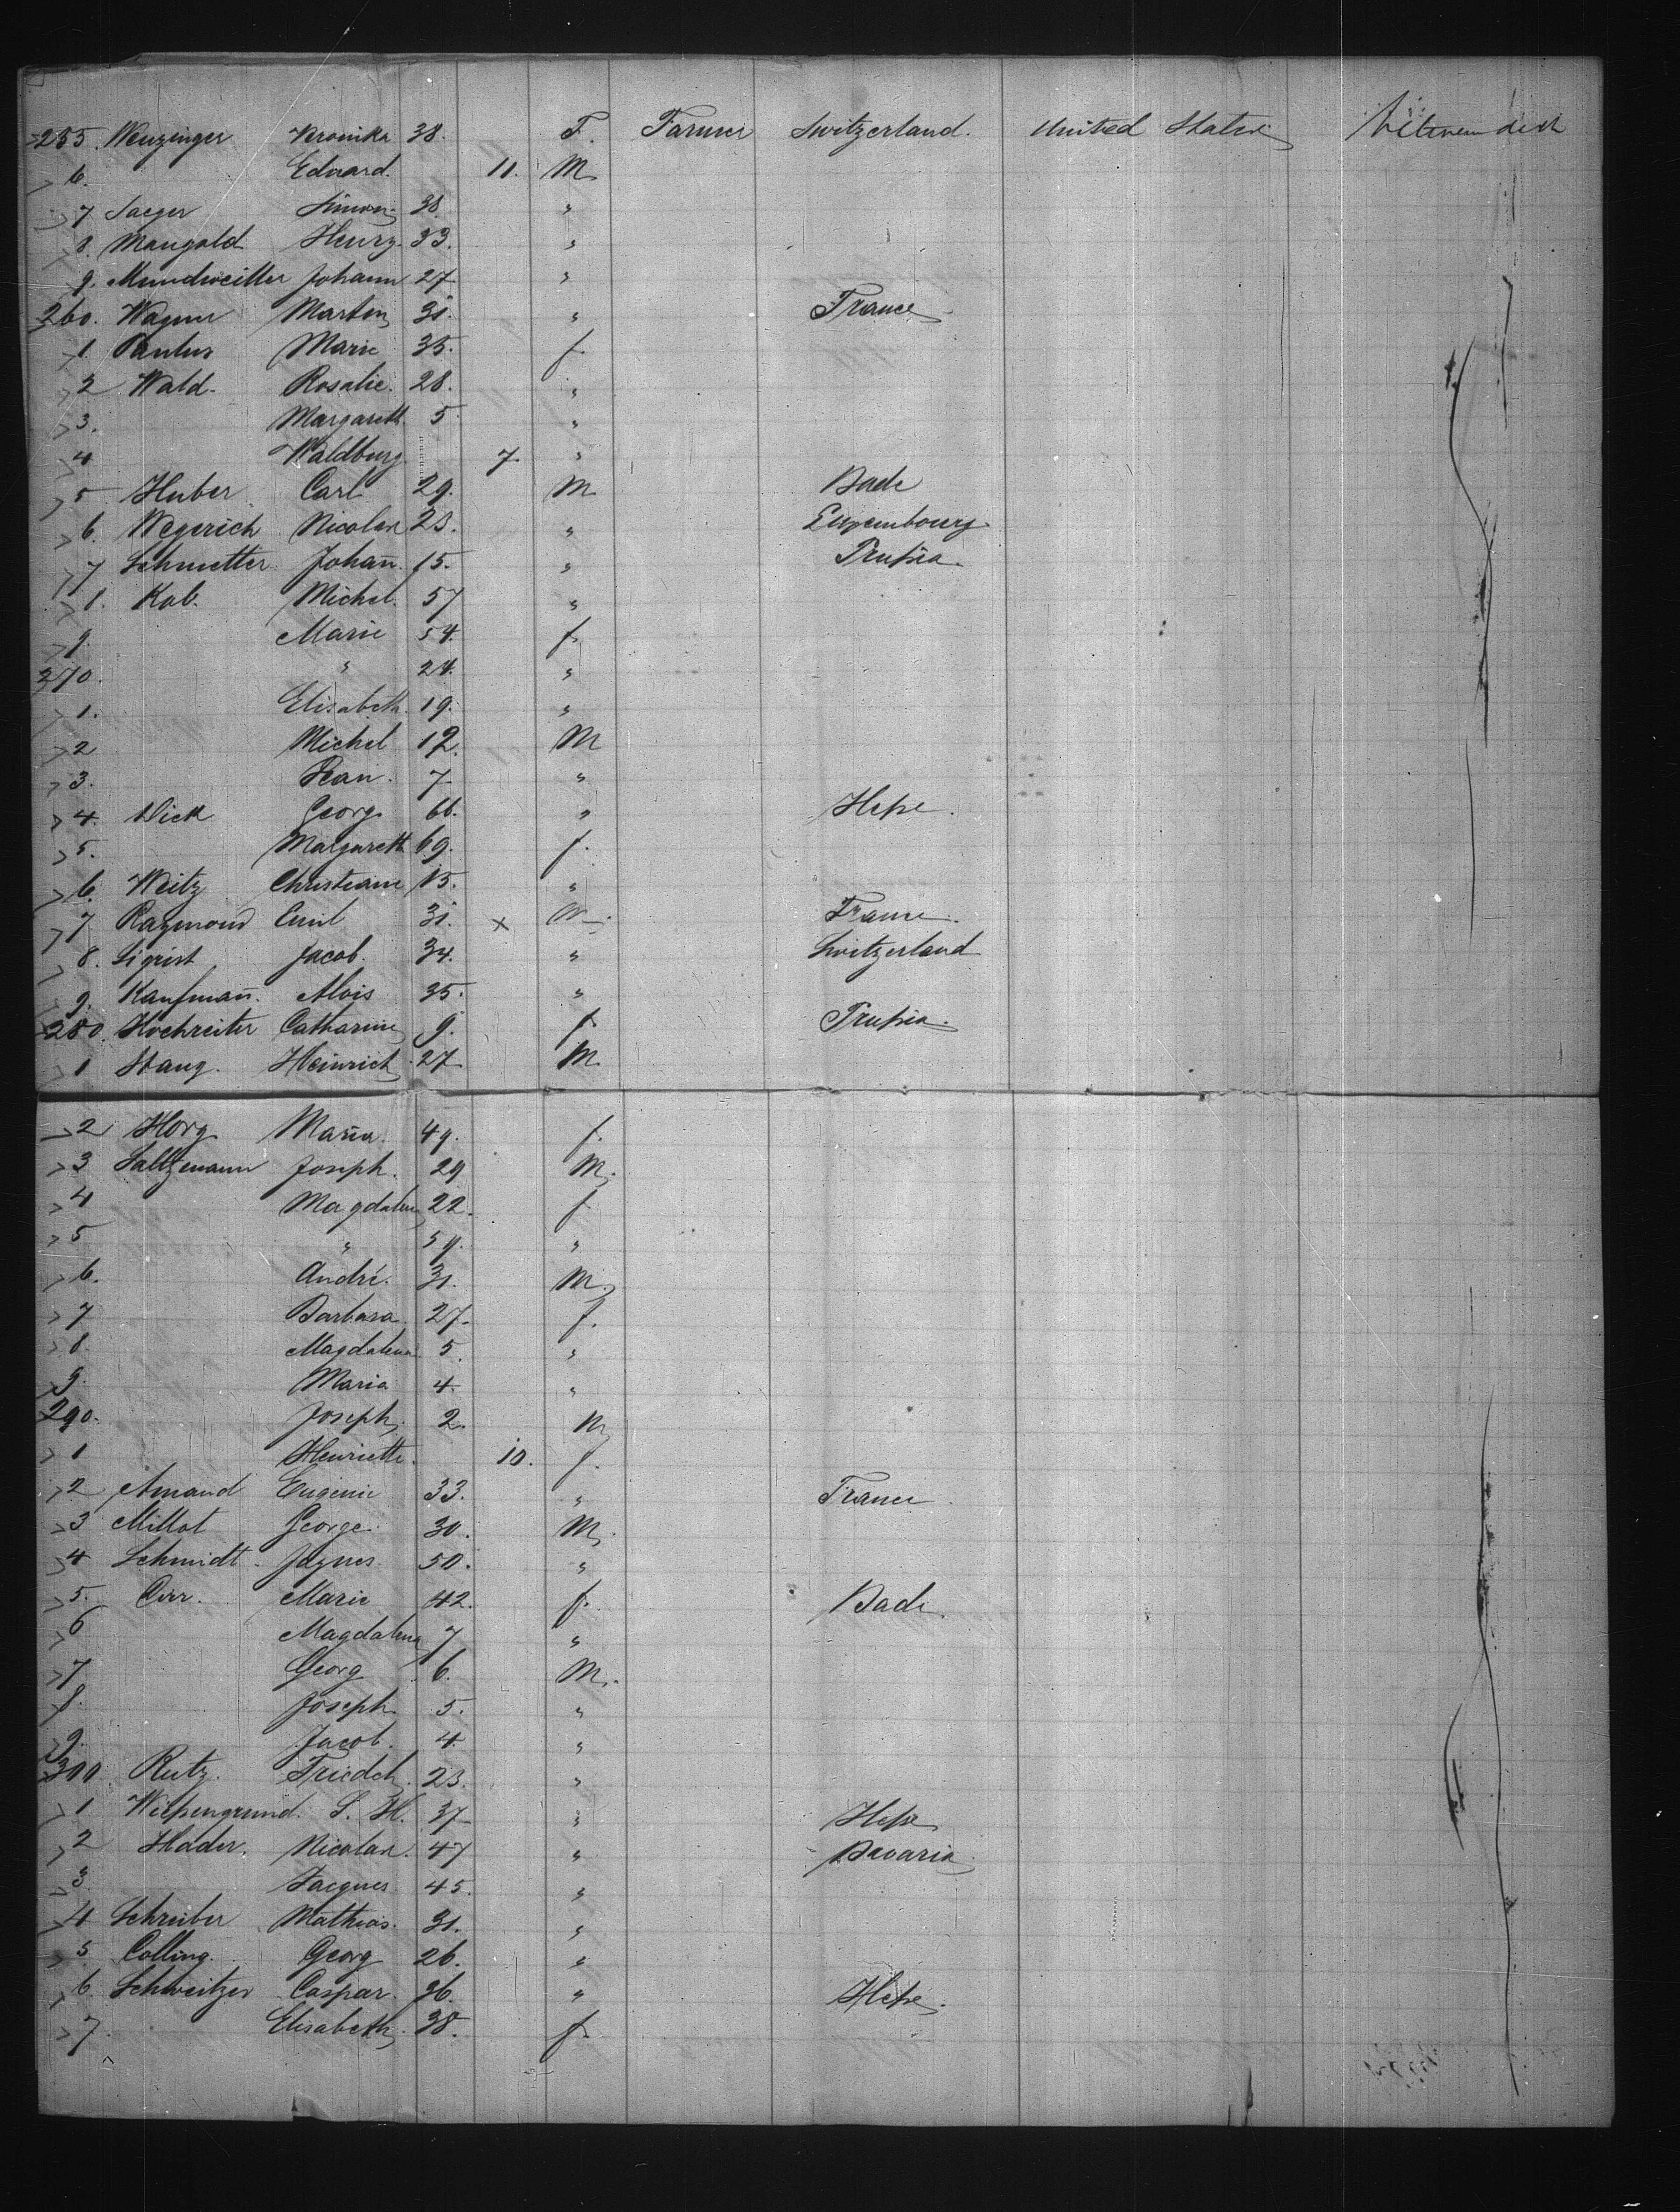 255. Wenzinger Veronika 38. F. Farmer Switzerland. United States
6. Edward. 11. M
7 Jaeger Simon 38 "
8. Mangold Henry. 33. "
9. Mundweiller Johann 27 "
260. Wagner Martin 31. " France
1. Paulus Marie 35. f.
2 Wald. Rosalie. 28. "
3. Margareth 5 "
4 Waldburg 7 "
5 Huber Carl 29. M Bade
6. Wegerich Nicolas 23. " Luxembourg.
7 Schmetter Johan̄. 15. " Prussia.
8. Kob. Michel. 57 "
9. Marie 54. f
270. " 24. "
1. Elisabeth. 19. "
2 Michel 12. M
3. Jean. 7 "
4. Dick Georg 66. " Hesse.
5. Margareth 69. f.
6. Weitz Christiane 15. "
7 Raymond Emil 31. x M. France.
8. Sigrist Jacob. 34. " Switzerland
9. Kaufman̄. Alois 35. "
280. Hochreiter Catharine 9. f Prussia.
1 Stang. Heinrich 27 M
2 Horg Maria. 49. f.
3 Saltzmann Joseph. 29 M.
4 Magdalena 22. f
5 " 59. "
6. André. 31. M.
7 Barbara 27. f.
8. Magdalena 5. "
9. Maria 4. "
290. Joseph 2. M
1 Henriette. 10. f.
2 Amand Eugenie 33. " France
3 Millot George. 30. M.
4 Schmidt Jaques 50. "
5. Cirr. Marie 42. f. Bade.
6 Magdalena 7 "
7 Georg 6. M.
8. Joseph 5. "
9. Jacob. 4. "
300 Rutz. Friedch. 23. "
1 Wissengrund. S. H. 37 " Hesse
2 Hader. Nicolas. 47 " Bavaria
3 Jacques 45. "
4 Schreiber Mathias. 31. "
5 Colling. Georg 26. "
6. Schweitzer Caspar. 36. " Hesse.
7. Elisabeth. 38. f.